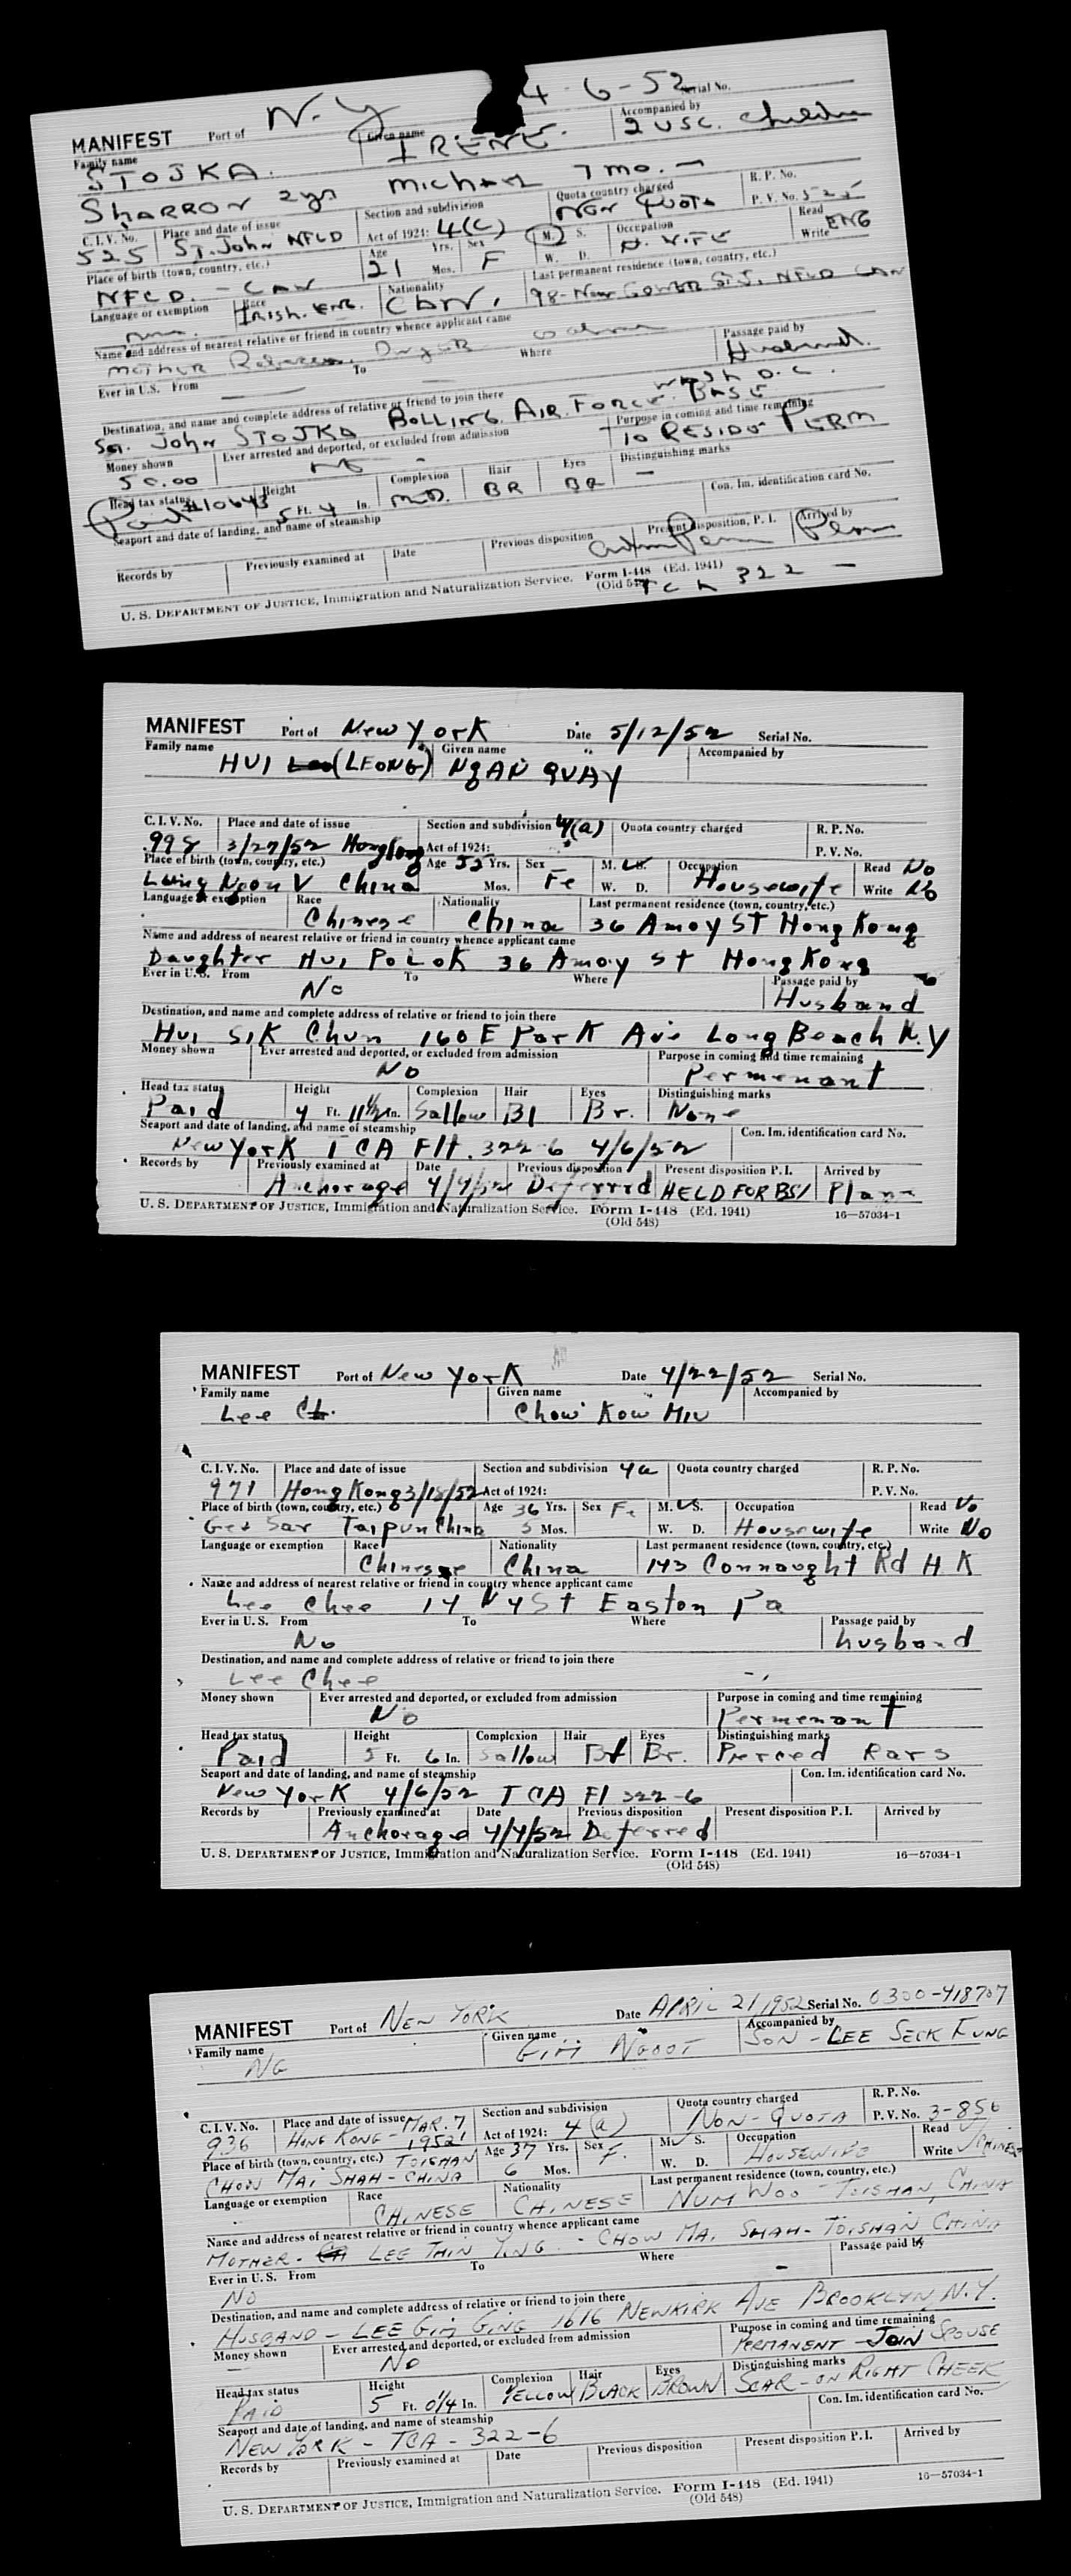 N.Y 4-6-52 Serial No.
MANIFEST Port of Given name Accompanied by
Family name IRENE. 2 USC. Children
STOJKA.
SHARRON 2 yrs Michael 7 mo. —
C.I.V. No. Place and date of issue Section and subdivision Quota country charged R. P. No.
525 St. John NFLD Act of 1924: 4(c) NON QUOTA P. V. No. 525
Place of birth (town, country, etc.) Age 21 Yrs. Mos. Sex F M. S. W. D. Occupation H. WIFE Read Write ENG
NFLD. - CAN Nationality Last permanent residence (town, country, etc.)
Language or exemption Race Irish. ENG. CAN. 98- New GOWER St. J. NFLD CAN
Name and address of nearest relative or friend in country whence applicant came
Mother Passage paid by
Ever in U.S. From To Where Husband.
Destination, and name and complete address of relative or friend to join there Wash D.C.
Sgt. John STOJKA BOLLING AIR FORCE BASE
Money shown Ever arrested and deported, or excluded from admission Purpose in coming and time remaining
50.00 No - To RESIDE PERM
Head tax status Height Complexion Hair Eyes Distinguishing marks
Paid #10643 5 Ft. 4 In. MED. BR BR — Con. Im. identification card No.
Seaport and date of landing, and name of steamship
Records by Previously examined at Date Previous disposition Present disposition, P. I. Arrived by
U. S. DEPARTMENT OF JUSTICE, Immigration and Naturalization Service. Form I-448 (Ed. 1941)
(Old 548) TCA 322 —
MANIFEST Port of New York Date 5/12/52 Serial No.
Family name Given name Accompanied by
HUI (LEONG) NgAN QUAY
C. I. V. No. Place and date of issue Section and subdivision 4(a) Quota country charged R. P. No.
998 3/27/52 Hong Kong Act of 1924: P. V. No.
Place of birth (town, country, etc.) Age 55 Yrs. Sex M. S. Occupation Read No
Lung Ngon V China Mos. Fe W. D. Housewife Write No
Language or exemption Race Nationality Last permanent residence (town, country, etc.)
Chinese China 36 Amoy ST Hong Kong
Name and address of nearest relative or friend in country whence applicant came
Daughter Hui Po Lok 36 Amoy st Hong Kong
Ever in U.S. From To Where Passage paid by
No Husband
Destination, and name and complete address of relative or friend to join there
Hui SIK Chun 160 E Park Ave Long Beach N.Y
Money shown Ever arrested and deported, or excluded from admission Purpose in coming and time remaining
No Permenant
Head tax status Height Complexion Hair Eyes Distinguishing marks
Paid 4 Ft. 11 1/2 In. Sallow Bl Br. None
Seaport and date of landing, and name of steamship Con. Im. identification card No.
New York TCA Flt. 322-6 4/6/52
Records by Previously examined at Date Previous disposition Present disposition P. I. Arrived by
Anchorage 4/4/52 Deferred HELD FOR BSI Plane
U. S. DEPARTMENT OF JUSTICE, Immigration and Naturalization Service. Form I-448 (Ed. 1941) 16—57034-1
(Old 548)
MANIFEST Port of New York Date 4/22/52 Serial No.
Family name Given name Accompanied by
Lee Chow Kow MIU
C. I. V. No. Place and date of issue Section and subdivision 4a Quota country charged R. P. No.
971 Hong Kong 3/18/52 Act of 1924: P. V. No.
Place of birth (town, country, etc.) Age 36 Yrs. Sex Fe M. S. Occupation Read No
Get Sar Taipun China 5 Mos. W. D. Housewife Write No
Language or exemption Race Nationality Last permanent residence (town, country, etc.)
Chinese China 143 Connaught Rd H K
Name and address of nearest relative or friend in country whence applicant came
Lee Chee 14 N 4 St Easton Pa
Ever in U. S. From To Where Passage paid by
No husband
Destination, and name and complete address of relative or friend to join there
Lee Chee
Money shown Ever arrested and deported, or excluded from admission Purpose in coming and time remaining
No Permenant
Head tax status Height Complexion Hair Eyes Distinguishing marks
Paid 5 Ft. 6 In. Sallow Bl Br. Pierced Ears
Seaport and date of landing, and name of steamship Con. Im. identification card No.
New York 4/6/52 TCA Fl 322-6
Records by Previously examined at Date Previous disposition Present disposition P. I. Arrived by
Anchorage 4/4/52 Deferred
U. S. DEPARTMENT OF JUSTICE, Immigration and Naturalization Service. Form I-448 (Ed. 1941) 16—57034-1
(Old 548)
MANIFEST Port of NEW YORK Date APRIL 21, 1952 Serial No. 0300-418707
Family name Given name Accompanied by
NG GIM NGOOT SON - LEE SECK FUNG
C. I. V. No. Place and date of issue MAR. 7 Section and subdivision Quota country charged R. P. No.
936 HONG KONG - 1952 Act of 1924: 4(a) NON-QUOTA P. V. No. 3-856
Place of birth (town, country, etc.) TOISHAN Age 37 Yrs. Sex M. S. Occupation Read
CHOW MAI SHAH - CHINA 6 Mos. F. W. D. HOUSEWIFE Write CHINESE
Language or exemption Race Nationality Last permanent residence (town, country, etc.)
CHINESE CHINESE NUM WOO - TOISHAN, CHINA
Name and address of nearest relative or friend in country whence applicant came
MOTHER - LEE THIN YING - CHOW MAI SHAH - TOISHAN, CHINA
Ever in U. S. From To Where Passage paid by
NO -
Destination, and name and complete address of relative or friend to join there
HUSBAND - LEE GIM GING 1616 NEWKIRK AVE BROOKLYN N.Y.
Money shown Ever arrested and deported, or excluded from admission Purpose in coming and time remaining
— NO PERMANENT - JOIN SPOUSE
Head tax status Height Complexion Hair Eyes Distinguishing marks
PAID 5 Ft. 0 1/4 In. YELLOW BLACK BROWN SCAR - ON RIGHT CHEEK
Seaport and date of landing, and name of steamship Con. Im. identification card No.
NEW YORK - TCA - 322-6
Records by Previously examined at Date Previous disposition Present disposition P. I. Arrived by
U. S. DEPARTMENT OF JUSTICE, Immigration and Naturalization Service. Form I-448 (Ed. 1941) 16—57034-1
(Old 548)